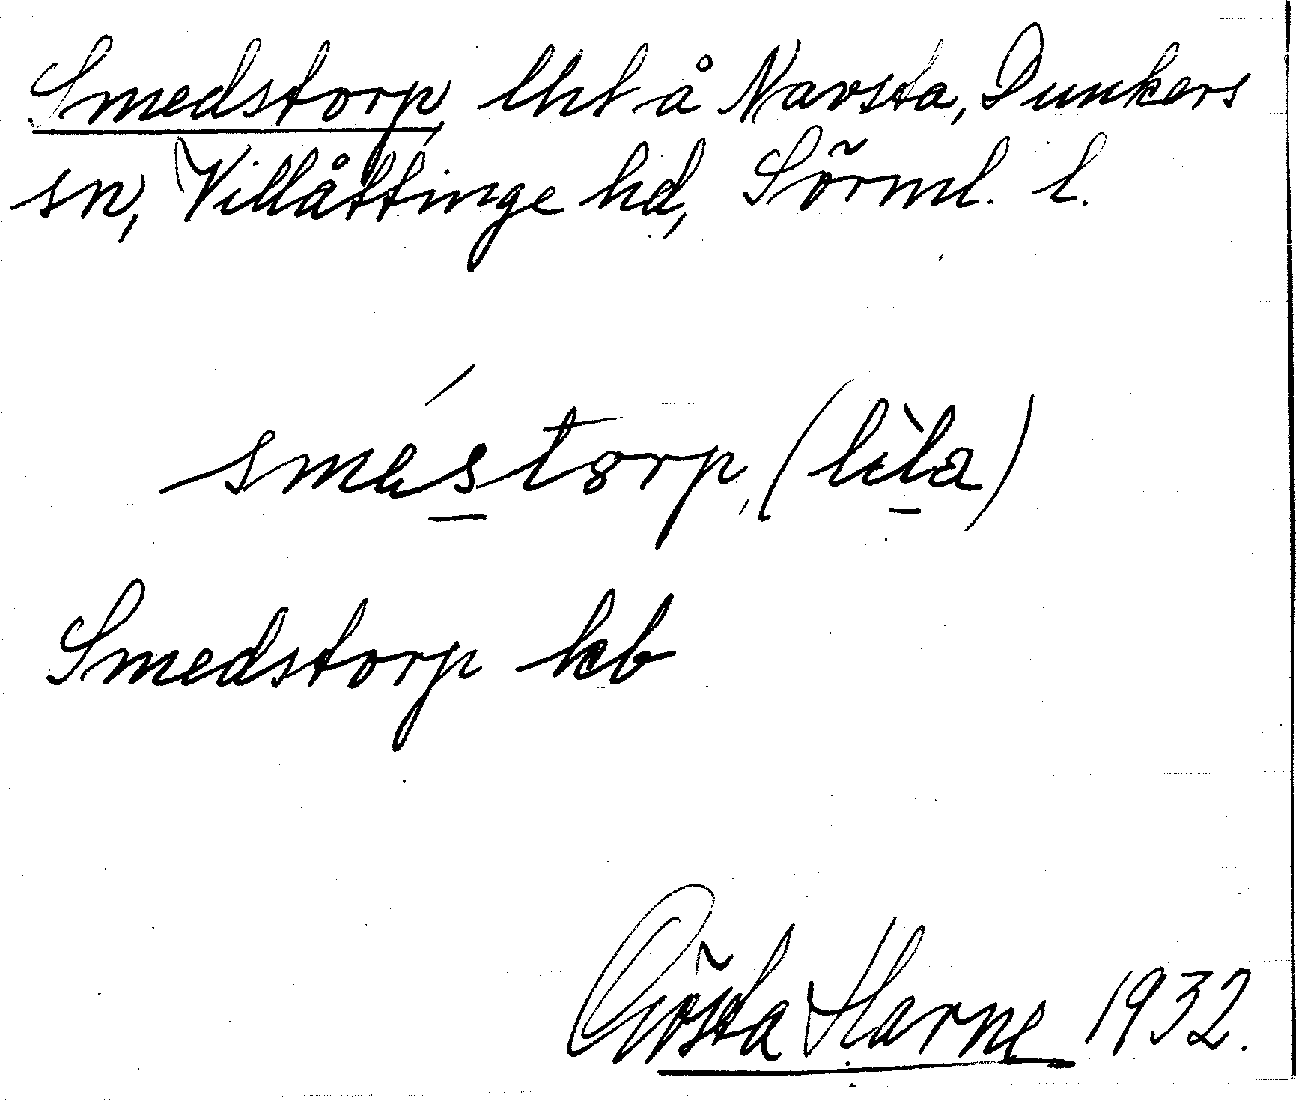 Smedstorp, lht å Navsta, Dunkers
sn, Villåttinge hd, Sörml. l.
smés̲torp, (lìl̲a)
Smedstorp kb
Gösta Harne 1932.